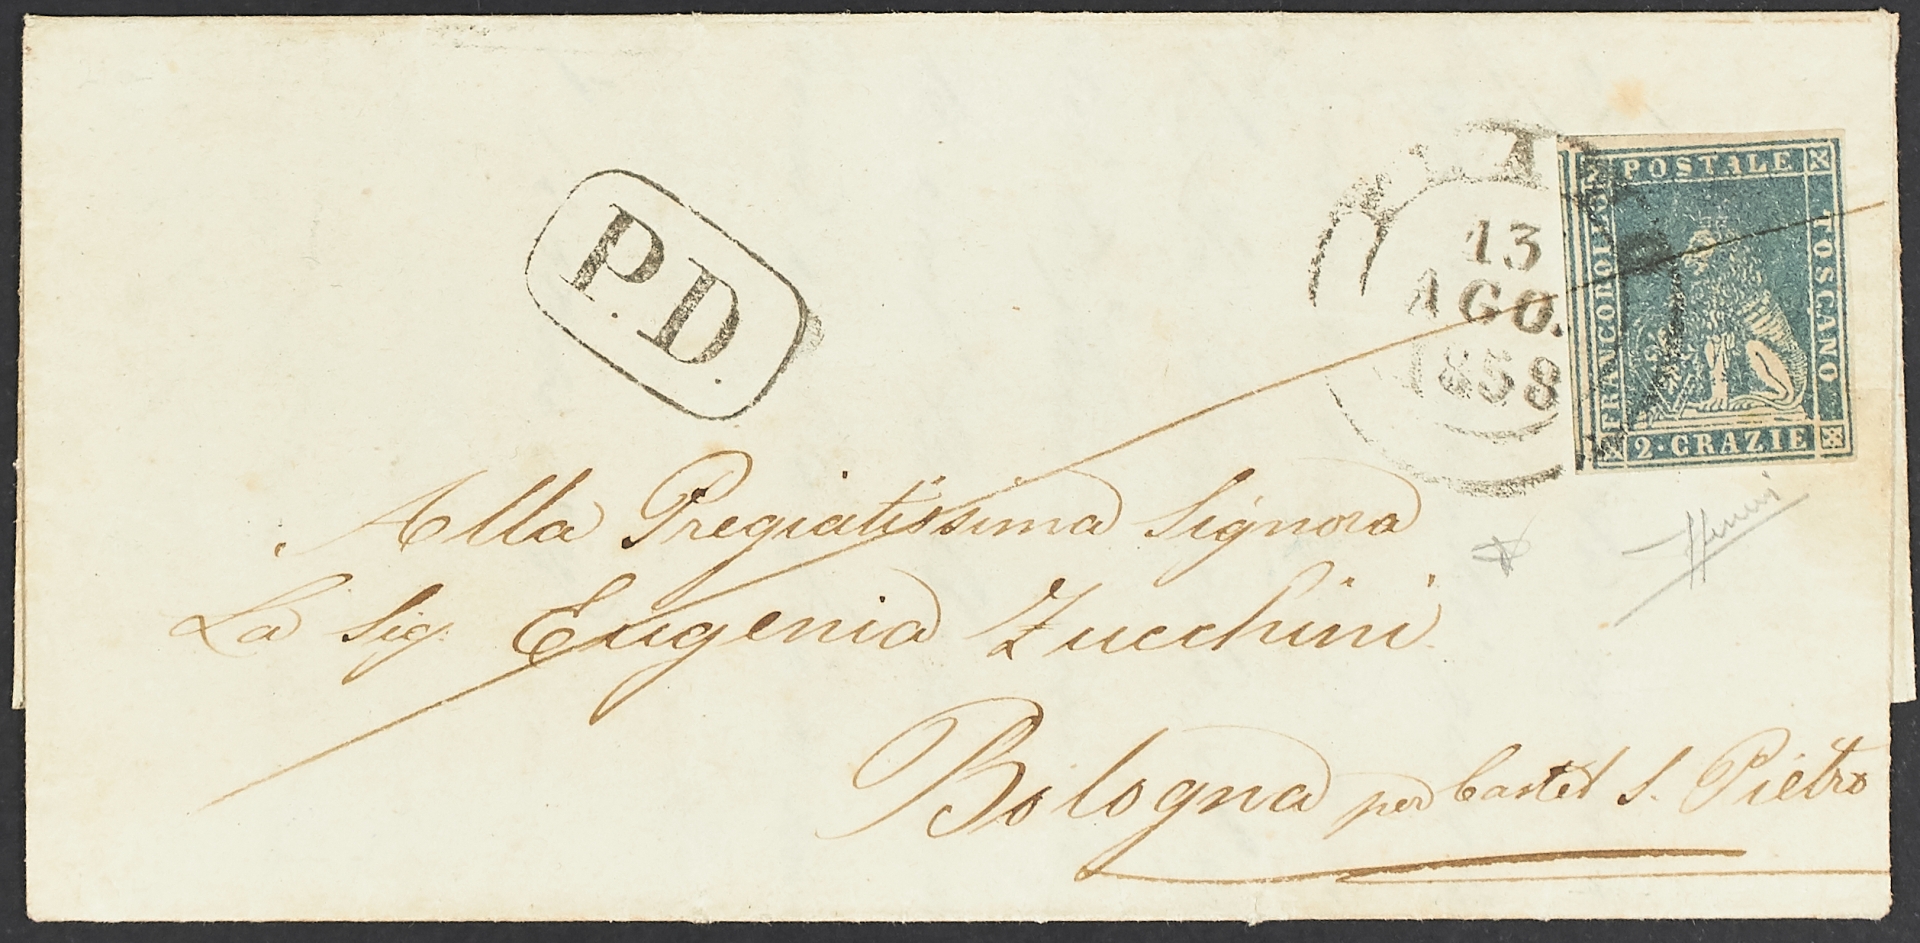 P.D.
13
AGO.
1858
POSTALE
FRANCOBOLLO
TOSCANO
2·CRAZIE
Alla Pregiatissima Signora
La Sig. Eugenia Zucchini
Bologna per Castel S. Pietro